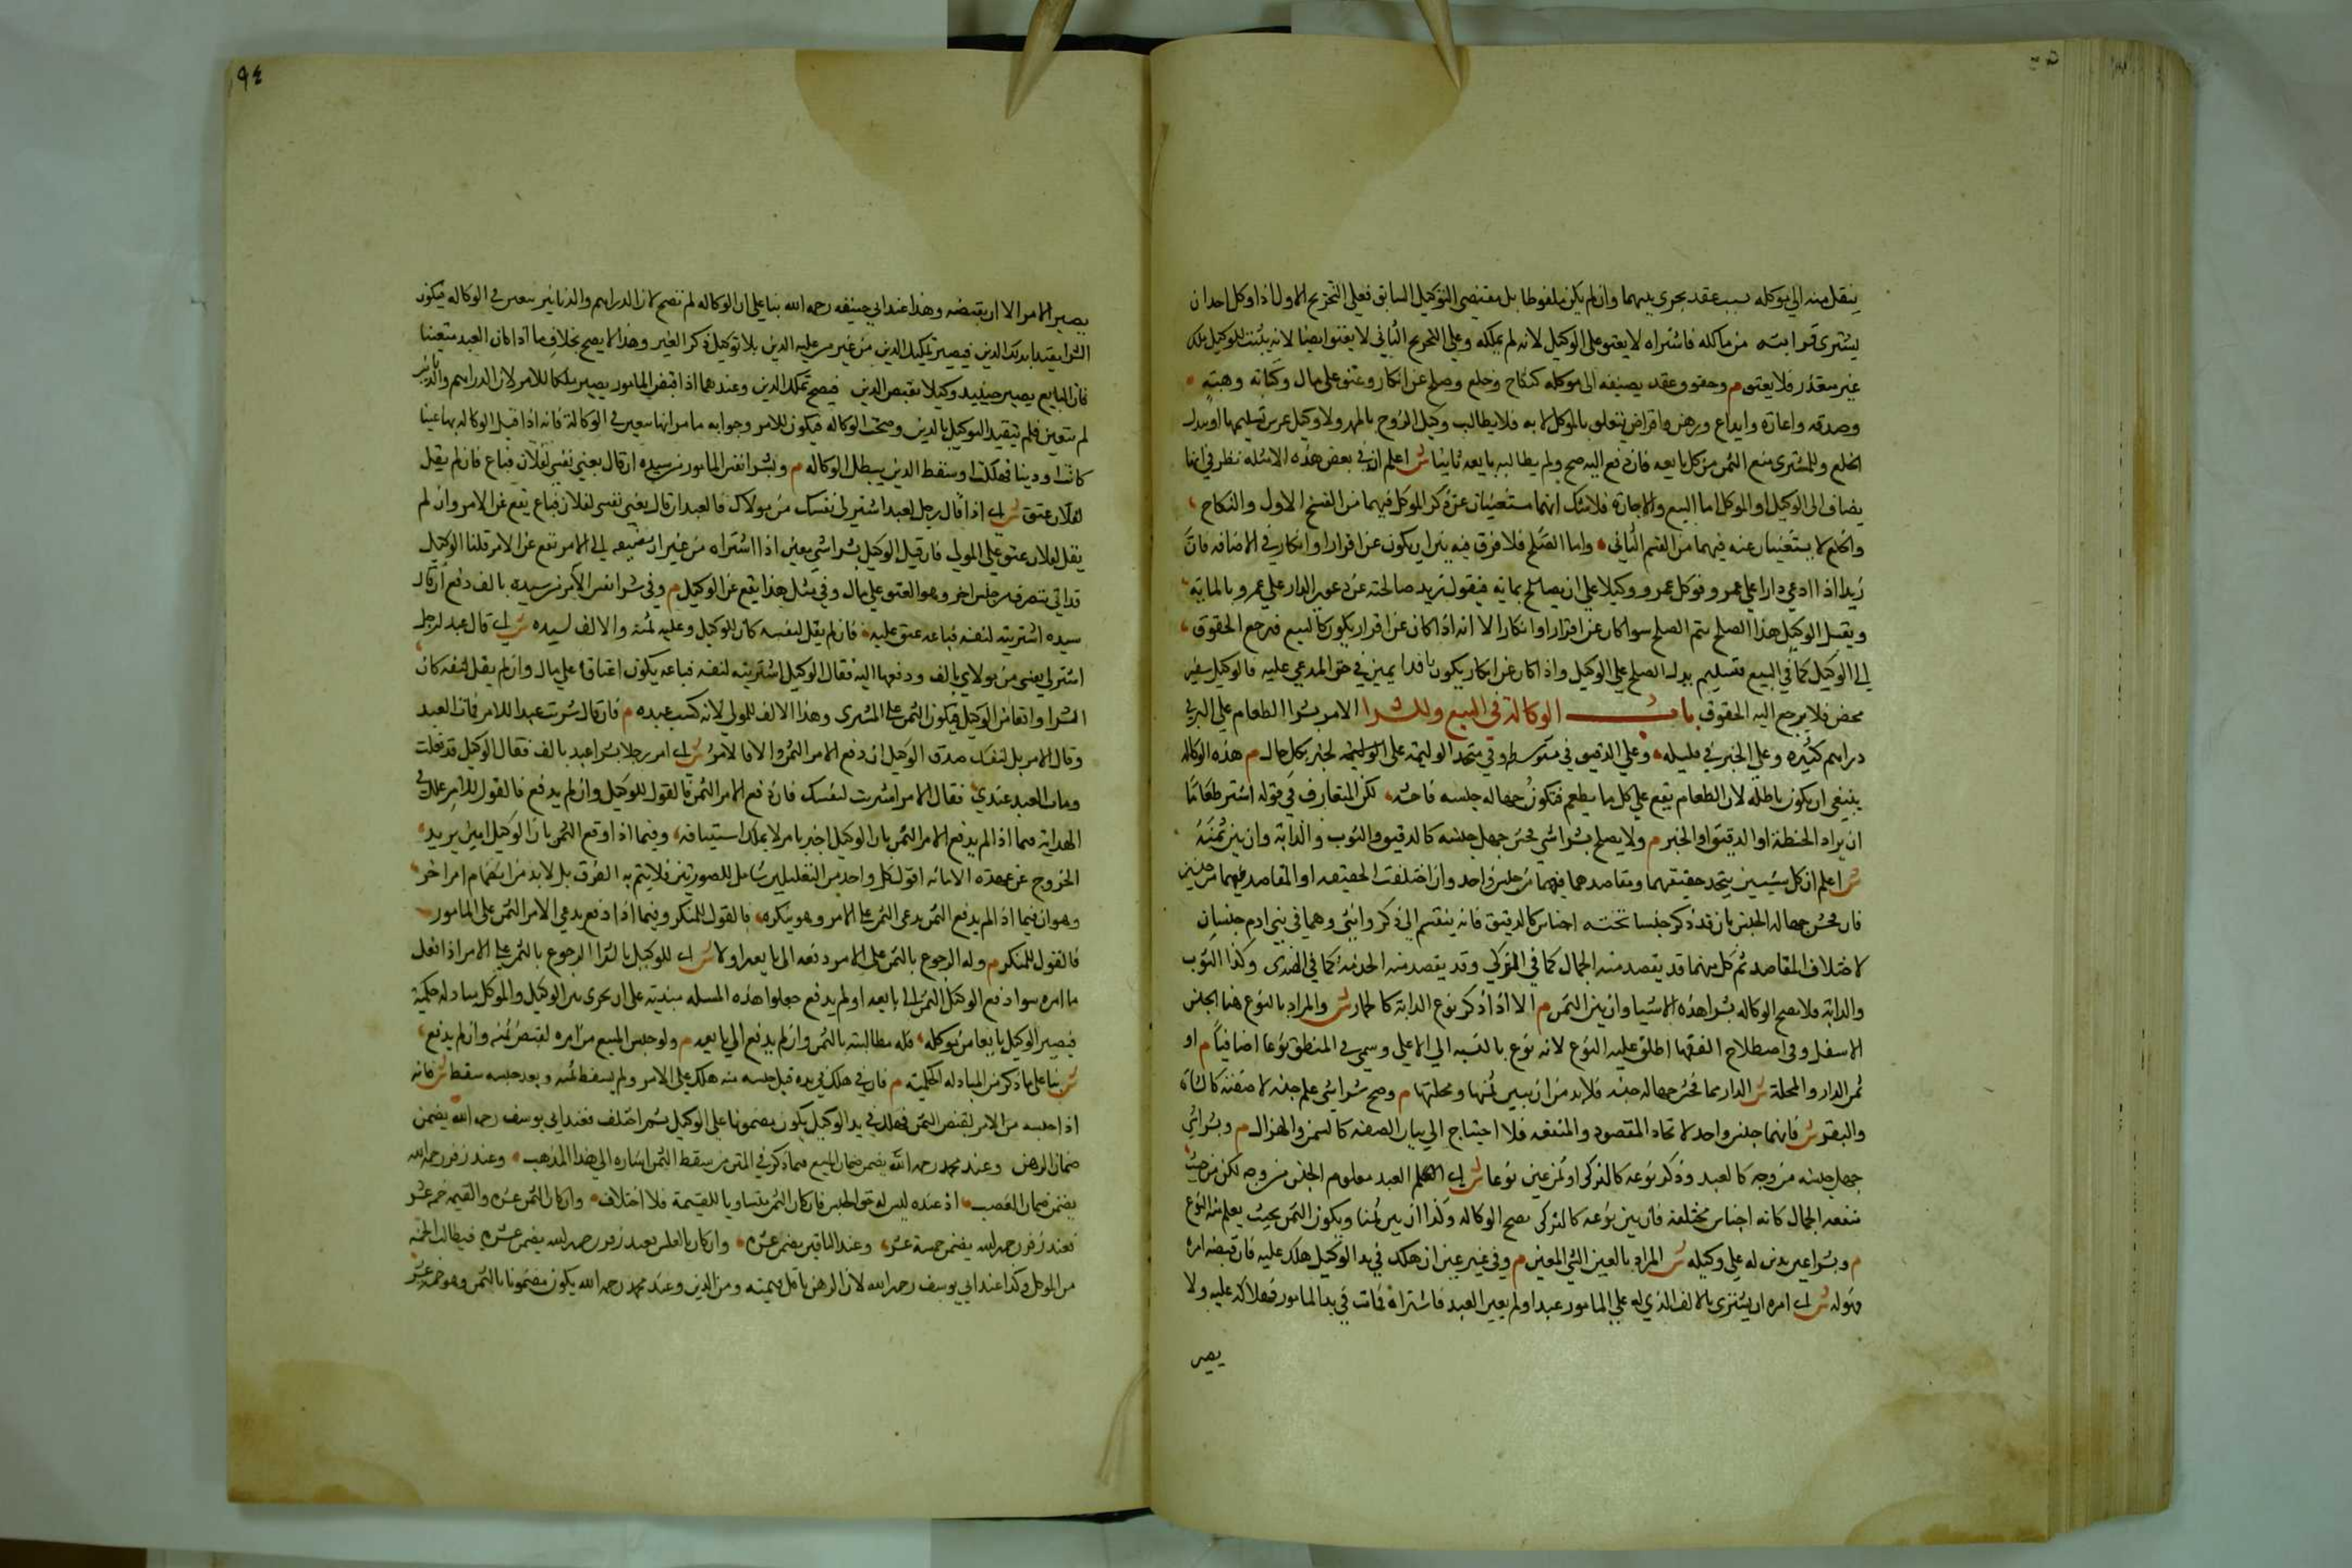 ينقل منه الي موكله بسبب عقد يجري بينهما وان لم يكن ملفوظا بل مقتضي التوكيل السابق فعلي التخريج الاول اذا وكل احدا ان
يشتري قرابته من مالكه فاشتراه لا يعتق علي الوكيل لانه لم يملكه وعلي التخريج الثاني لا يعتق ايضا لانه يثبت للوكيل ملك
غير متقرر فلا يعتق م وحقوق عقد يضيفه الي موكله كنكاح وخلع وصلح عن انكار وعتق علي مال وكتابة وهبة
وصدقه واعارة وايداع ورهن واقراض يتعلق بالموكل لا به فلا يطالب وكيل الزوج بالمهر ولا وكيل عرس تسليمها او بدل
الخلع وللمشتري منع الثمن من موكل بايعه فان دفع اليه صح ولم يطالبه بايعه ثانيا ش اعلم ان في بعض هذه الامثله نظر في انها
يضاف الي الوكيل او الموكل اما البيع والاجارة فلا شك انهما مستغنيان عن ذكر الموكل فهما من القسم الاول والنكاح
والخلع لا يستغنيان عنه فهما من القسم الثاني واما الصلح فلا فرق فيه بين ان يكون عن اقرار او انكار في الاضافه فان
زيدا اذا ادعي دارا علي عمرو فوكل عمرو وكيلا علي ان يصالح بمايه فيقول زيد صالحته عن دعوي الدار علي عمرو بالمايه
ويقبل الوكيل هذا الصلح يتم الصلح سوا كان عن اقرار او انكار الا انه اذا كان عن اقرار يكون كالبيع فيرجع الحقوق
الي الوكيل كما في البيع فتسليم بدل الصلح علي الوكيل واذا كان عن انكار يكون فدا يمين في حق المدعي عليه فالوكيل سفير
محض فلا يرجع اليه الحقوق باب الوكالة في البيع والشرا الامر بشرا الطعام علي البر في
دراهم كثيره وعلي الخبز في قليله وعلي الدقيق في متوسط وفي متخذ الوليمه علي الخبز بكل حال م هذه الوكاله
ينبغي ان يكون باطله لان الطعام يقع علي كل ما يطعم فتكون جهاله جنسه فاحشه لكن المتعارف في قوله اشتر طعاما
ان يراد الحنطة او الدقيق او الخبز م ولا يصح بشرا شي فحش جهل جنسه كالرقيق والثوب والدابة وان بين ثمنه
ش اعلم ان كل شيئين يتحد حقيقتهما ومقاصدهما فهما من جنس واحد وان اختلفت الحقيقه او المقاصد فهما من جنسين
فان فحش جهالة الجنس بان قد ذكر جنسا تحته اجناس كالرقيق فانه ينقسم الي ذكر وانثي وهما في بني ادم جنسان
لاختلاف المقاصد ثم كل منهما قد يقصد منه الجمال كما في التركي وقد يقصد منه الخدمة كما في الهندي وكذا الثوب
والدابة فلا يصح الوكاله بشرا هذه الاشيا وان بين الثمن م الا اذا ذكر نوع الدابة كالحمار ش والمراد بالنوع هنا الجنس
الاسفل وفي اصطلاح الفقها اطلق عليه النوع لانه نوع بالنسبه الي الاعلي وسمي في المنطق نوعا اضافيا م او
ثمن الدار والمحلة ش الدار مما فحش جهالة جنسه فلا بد من ان يبين ثمنها ومحلتها م وصح بشرا شي علم جنسه لا صفته كالشاة
والبقر ش فانهما جنس واحد لاتحاد المقصود والمنفعه فلا احتياج الي بيان الصفه كالسمن والهزال م وبشرا شي
جهل جنسه من وجه كالعبد وذكر نوعه كالتركي او ثمن عين نوعا ش اي العبد معلوم الجنس من وجه لكن من حيث
منفعه الجمال كانه اجناس مختلفة فان بين نوعه كالتركي يصح الوكاله وكذا ان بين ثمنا ويكون الثمن بحيث يعلم منه النوع
م وبشرا عين بدين له علي وكيله ش المراد بالعين الشي المعين م وفي غير عين ان هلك في يد الوكيل هلك عليه فان قبضه امره
فهو له ش اي امره ان يشتري بالالف الذي له علي المامور عبدا ولم يعين العبد فاشتراه فمات في يد المامور فهلاكه عليه ولا
يصير
٩٤
يصير للامر الا ان يقبضه وهذا عند ابي حنيفه رحمه الله بنا علي ان الوكاله لم تصح لان الدراهم والدنانير تتعين في الوكاله فيكون
الشرا مقيدا بذلك الدين فيصير تمليك الدين من غير من عليه الدين بلا توكيل ذكر الغير وهذا لا يصح بخلاف ما اذا كان العبد متعينا
فان البايع يصير حينئذ وكيلا بقبض الدين فيصح تملك الدين وعندهما اذا قبض المامور يصير ملكا للامر لان الدراهم والدنانير
لم تتعين فلم يتقيد التوكيل بالدين وصحت الوكاله فيكون للامر وجوابه ما مر انها تتعين في الوكالة فانه اذا قيد الوكاله بها عينا
كانت او دينا فهلكت او سقط الدين يبطل الوكاله م وبشرا نفس المامور من سيده ان قال بعني نفسي لفلان فباع فان لم يقل
لفلان عتق ش اي اذا قال رجل لعبد اشتر لي نفسك من مولاك فالعبد ان قال بعني نفسي لفلان فباع يقع عن الامر وان لم
يقل لفلان عتق علي المولي فان قيل الوكيل بشرا شي بعينه اذا اشتراه من غير ان يضيفه الي الامر يقع عن الامر قلنا الوكيل
قد اتي بتصرف من جنس اخر وهو العتق علي مال وفي مثل هذا يقع عن الوكيل م وفي شرا نفس الامر من سيده بالف دفع ان قال
سيده اشتريته لنفسه فباعه عتق عليه فان لم يقل لنفسه كان للوكيل وعليه ثمنه والالف لسيده ش اي قال عبد لرجل
اشتر لي نفسي من مولاي بالف ودفعها اليه فقال الوكيل اشتريته لنفسه فباعه يكون اعتاقا علي مال وان لم يقل لنفسه كان
الشرا واقعا من الوكيل فيكون الثمن علي المشتري وهذا الالف للمولي لانه كسب عبده م فان قال شريت عبدا للامر فمات العبد
وقال الامر بل لنفسك صدق الوكيل ان دفع الامر الثمن والا فالامر ش اي امر رجلا بشرا عبد بالف فقال الوكيل قد فعلت
ومات العبد عندي فقال الامر اشتريت لنفسك فان دفع الامر الثمن فالقول للوكيل وان لم يدفع فالقول للامر علل في
الهداية فيما اذا لم يدفع الامر الثمن بان الوكيل اخبر بامر لا يملك استينافه وفيما اذا دفع الثمن بان الوكيل امين يريد
الخروج عن عهدة الامانه اقول كل واحد من التعليلين شامل للصورتين فلا يتم به الفرق بل لا بد من انضمام امر اخر
وهو ان فيما اذا لم يدفع الثمن يدعي الثمن علي الامر وهو ينكره فالقول للمنكر وفيما اذا دفع يدعي الامر الثمن علي المامور
فالقول للمنكر م وله الرجوع بالثمن علي الامر دفعه الي بايعه او لا ش اي للوكيل بالشرا الرجوع بالثمن علي الامر اذا فعل
ما امره سوا دفع الوكيل الثمن الي بايعه او لم يدفع جعلوا هذه المسله مبنية علي ان يجري بين الوكيل والموكل مبادله حكمية
فيصير الوكيل بايعا من موكله فله مطالبته بالثمن وان لم يدفع الي بايعه م وله حبس المبيع من امره لقبض ثمنه وان لم يدفع
ش بنا علي ما ذكر من المبادله الحكمية م فان هلك في يده قبل حبسه منه هلك علي الامر ولم يسقط ثمنه وبعد حبسه سقط ش فانه
اذا حبسه من الامر لقبض الثمن فهلك في يد الوكيل يكون مضمونا علي الوكيل ثم اختلف فعند ابي يوسف رحمه الله يضمن
ضمان الرهن وعند محمد رحمه الله يضمن ضمان المبيع فما ذكر في المتن من سقط الثمن اشاره الي هذا المذهب وعند زفر رحمه الله
يضمن ضمان الغصب اذ عنده ليس له حق الحبس فان كان الثمن متساويا للقيمة فلا اختلاف وان كان الثمن عشره والقيمه خمسه عشر
فعند زفر رحمه الله يضمن خمسة عشر وعند الباقين يضمن عشره وان كان بالعكس فعند زفر رحمه الله يضمن عشره فيطالب الخمسه
من الموكل وكذا عند ابي يوسف رحمه الله لان الرهن باقل من قيمته ومن الدين وعند محمد رحمه الله يكون مضمونا بالثمن وهو خمسه عشر